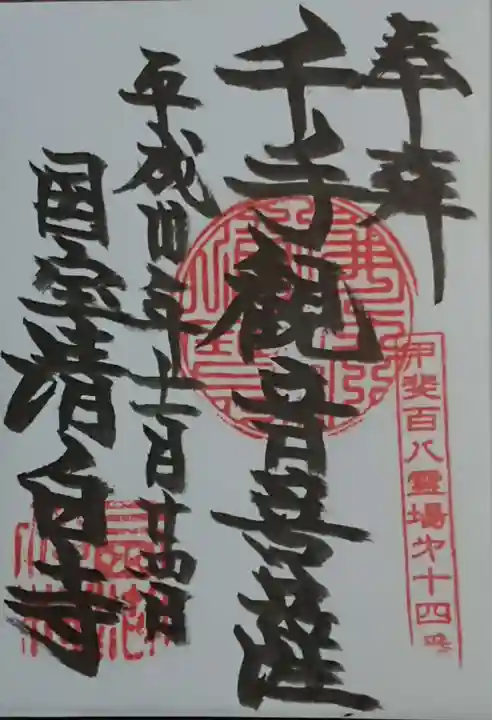 奉拝
甲斐百八霊場第十四番
千手観音菩薩
平成卅年十一月廿四日
国宝清白寺